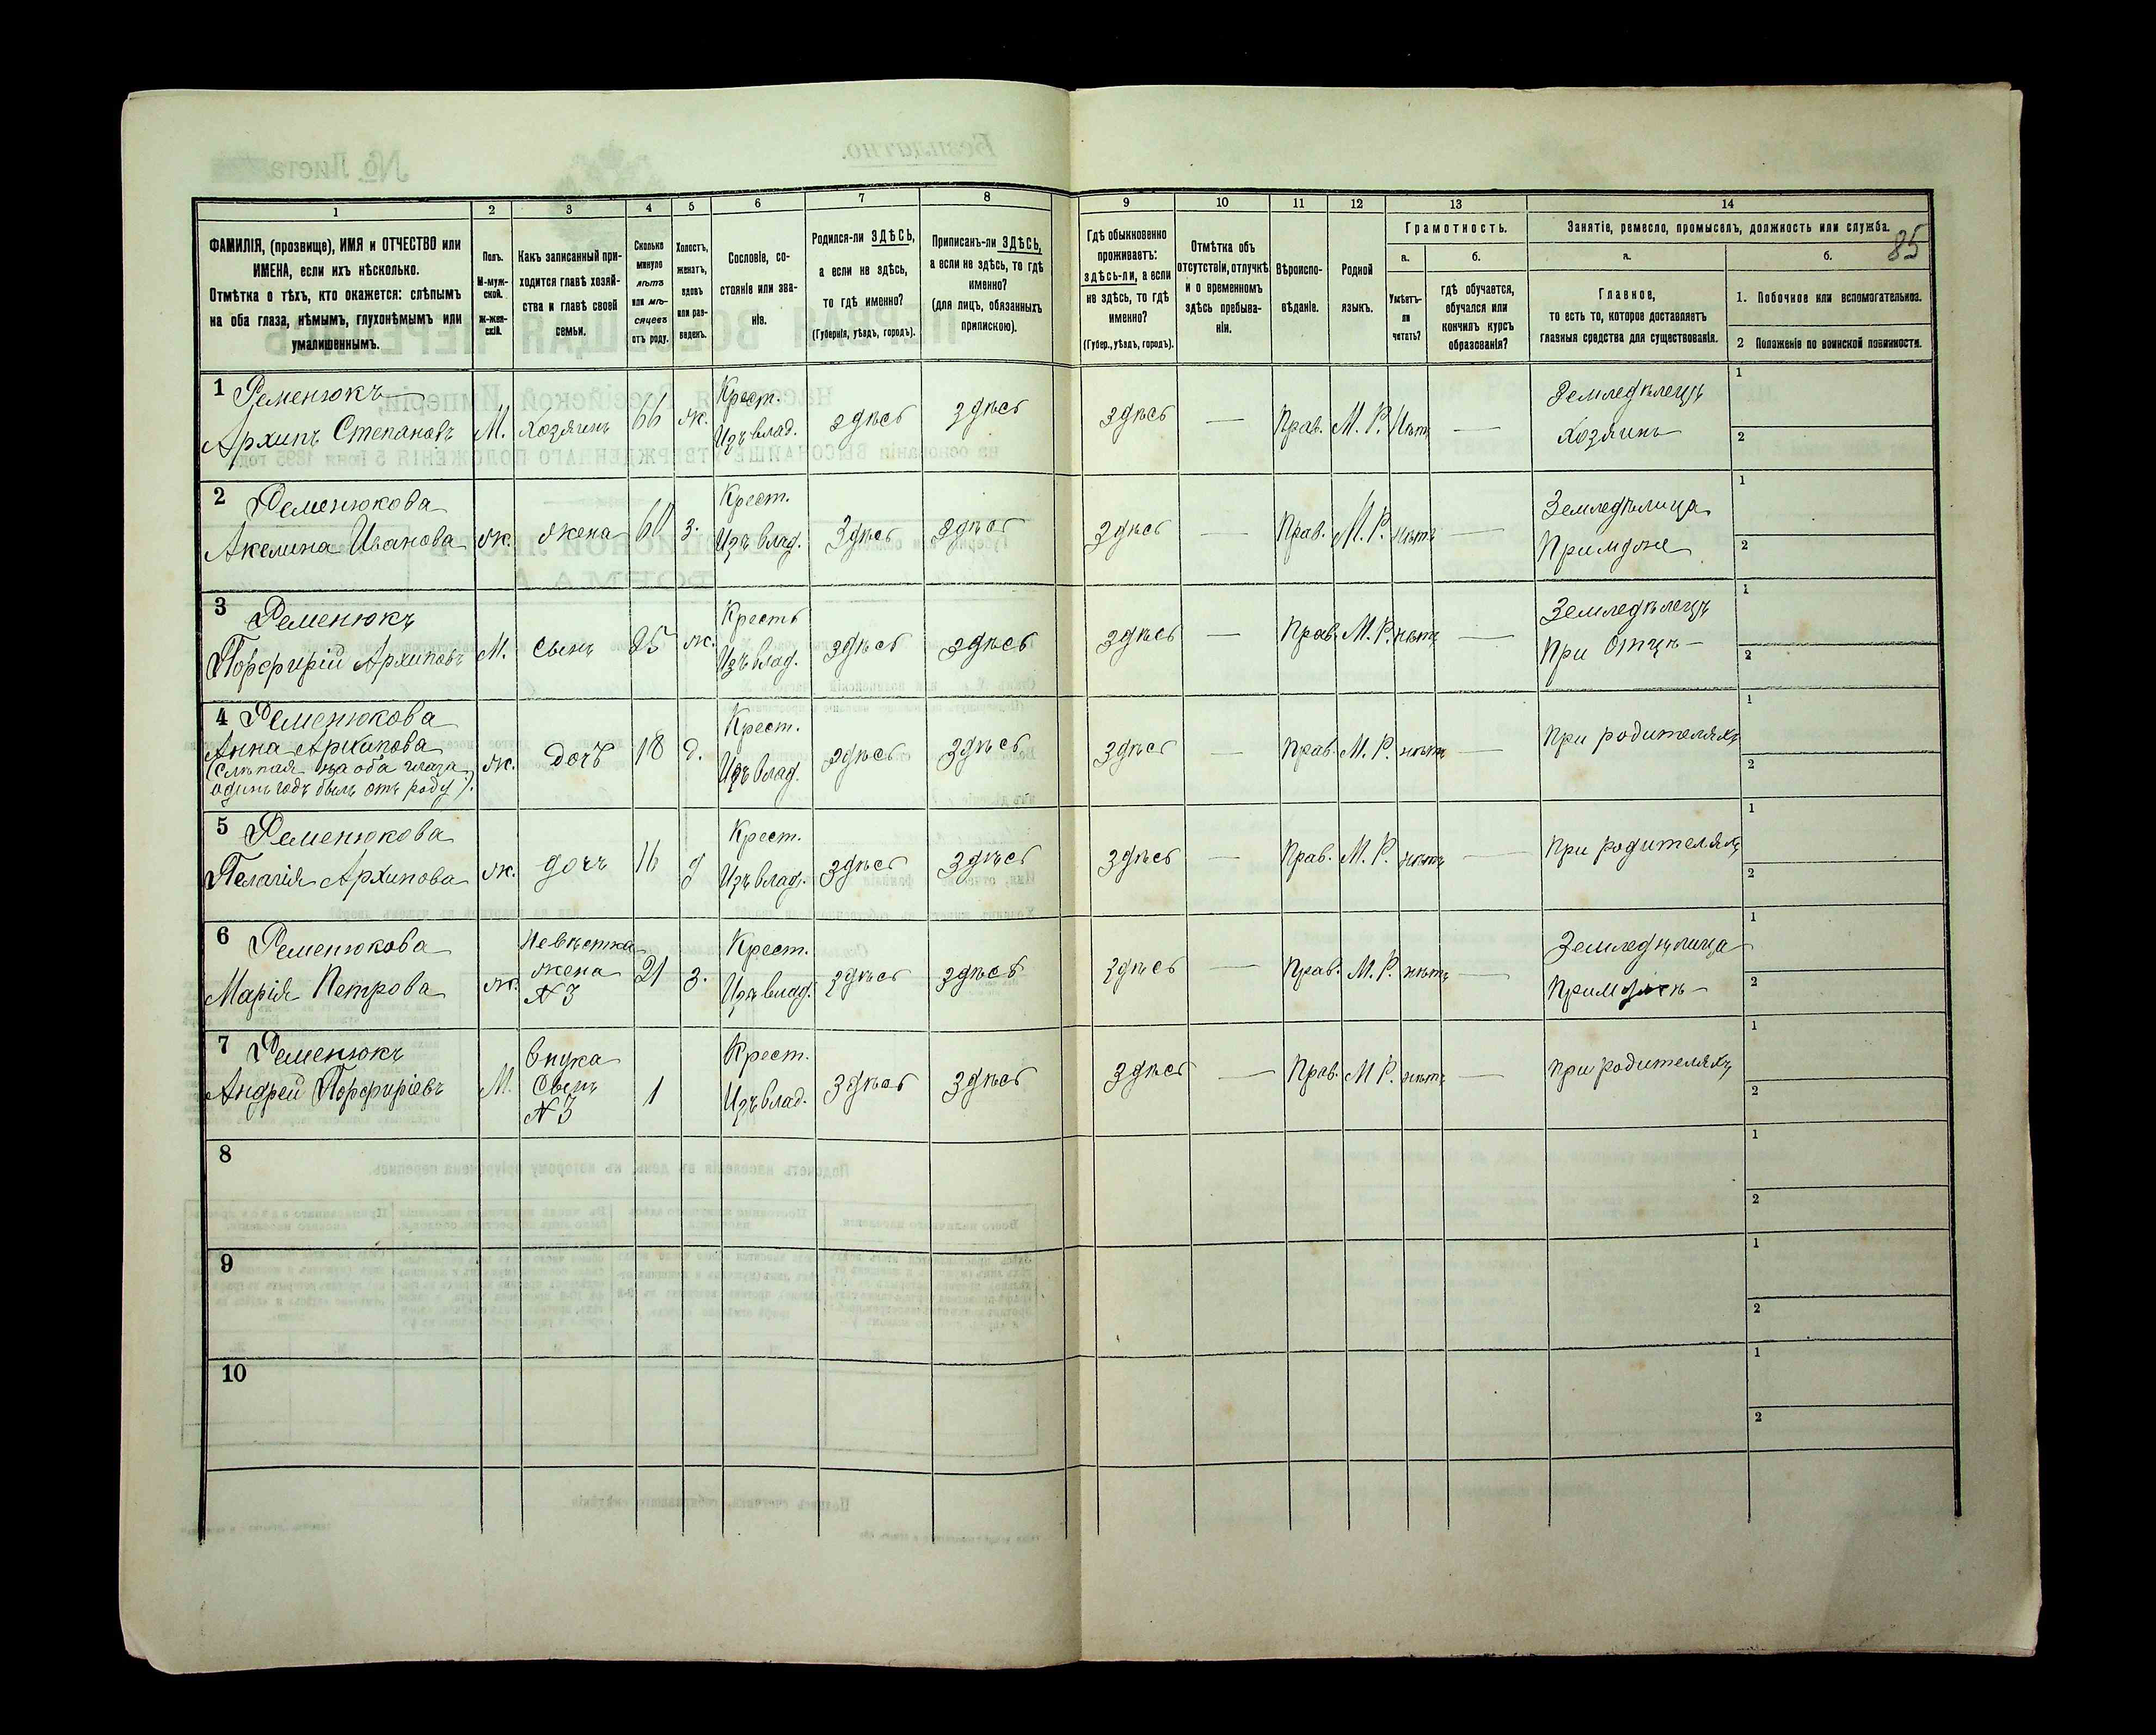 1 2 3 4 5 6 7 8 9 10 11 12 13 14
85
ФАМИЛІЯ, (прозвище), ИМЯ и ОТЧЕСТВО или
ИМЕНА, если ихъ нѣсколько.
Отмѣтка о тѣхъ, кто окажется: слѣпымъ
на оба глаза, нѣмымъ, глухонѣмымъ или
умалишеннымъ.
Полъ.
М-муж-
ской.
ж-жен-
скій.
Какъ записанный при-
ходится главѣ хозяй-
ства и главѣ своей
семьи.
Сколько
минуло
лѣтъ
или мѣ-
сяцевъ
отъ роду.
Холостъ,
женатъ,
вдовъ
или раз-
веденъ.
Сословіе, со-
стояніе или зва-
ніе.
Родился-ли ЗДѢСЬ,
а если не здѣсь,
то гдѣ именно?
(Губернія, уѣздъ, городъ).
Приписанъ-ли ЗДѢСЬ,
а если не здѣсь, то гдѣ
именно?
(для лицъ, обязанныхъ
припискою).
Гдѣ обыкновенно
проживаетъ:
здѣсь-ли, а если
не здѣсь, то гдѣ
именно?
(Губер., уѣздъ, городъ).
Отмѣтка объ
отсутствіи, отлучкѣ
и о временномъ
здѣсь пребыва-
ніи.
Вѣроиспо-
вѣданіе.
Родной
языкъ.
Грамотность.
а.
Умѣетъ-
ли
читать?
б.
гдѣ обучается,
обучался или
кончилъ курсъ
образованія?
Занятіе, ремесло, промыселъ, должность или служба.
а.
Главное,
то есть то, которое доставляетъ
главныя средства для существованія.
б.
1. Побочное или вспомогательное.
2 Положеніе по воинской повинности.
1 Ременюкъ
Архипъ Степановъ М. Хозяинъ 66 ж. Крест. Изъ влад. здѣсь здѣсь здѣсь — Прав. М. Р. Нѣтъ — Земледѣлецъ Хозяинъ 1 2
2 Ременюкова
Акелина Иванова ж. жена 60 з. Крест. Изъ влад. Здѣсь здѣсь здѣсь — Прав. М. Р. нѣтъ — Земледѣлица При мужѣ 1 2
3 Ременюкъ
Порфирій Архиповъ М. сынъ 25 ж. Кресть Изъ влад. здѣсь здѣсь здѣсь — Прав. М. Р. нѣтъ — Земледѣлецъ При Отцѣ 1 2
4 Ременюкова
Анна Архипова
(слѣпая на оба глаза
одинъ годъ былъ отъ роду). ж. дочь 18 д. Крест. Изъ влад. здѣсь здѣсь здѣсь — Прав. М. Р. нѣтъ — При родителяхъ 1 2
5 Ременюкова
Пелагія Архипова ж. дочь 16 д Крест. Изъ влад. здѣсь здѣсь здѣсь — Прав. М. Р. нѣтъ — При родителяхъ 1 2
6 Ременюкова
Марія Петрова ж. Невѣстка жена N 3 21 з. Крест. Изъ влад. здѣсь здѣсь здѣсь — Прав. М. Р. нѣтъ — Земледѣлица При мужѣ 1 2
7 Ременюкъ
Андрей Порфиріевъ М. Внука Сынъ N 3 1 Крест. Изъ влад. здѣсь здѣсь здѣсь — Прав. М Р. нѣтъ — При родителяхъ 1 2
8 1 2
9 1 2
10 1 2